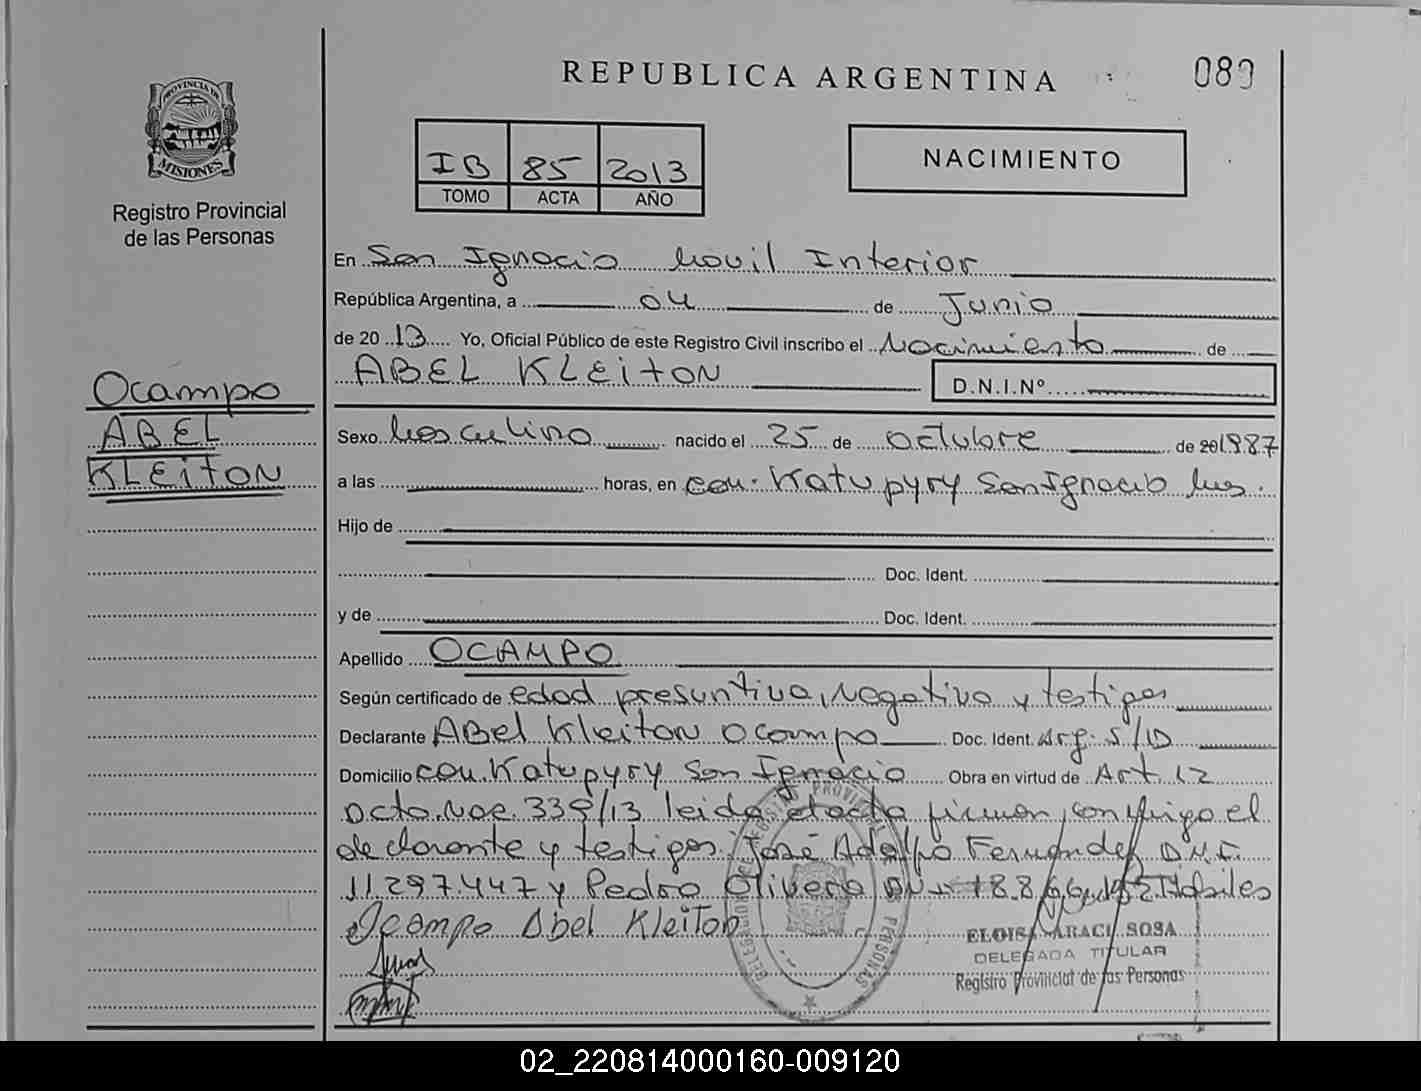 REPUBLICA ARGENTINA
089
PROVINCIA DE MISIONES
Registro Provincial
de las Personas
IB 85 2013
TOMO ACTA AÑO
NACIMIENTO
En San Ignacio Movil Interior
República Argentina, a 04 de Junio
de 20 13 Yo, Oficial Público de este Registro Civil inscribo el Nacimiento de
ABEL KLEITON D.N.I.Nº
Ocampo
ABEL
KLEITON
Sexo Masculino nacido el 25 de octubre de 201987
a las horas, en com. Katupyry San Ignacio Mns.
Hijo de
Doc. Ident.
y de Doc. Ident.
Apellido OCAMPO
Según certificado de edad presuntiva, Negativo y testigos
Declarante ABel Kleiton Ocampo Doc. Ident. Arg. S/ID
Domicilio com. Katupyry San Ignacio Obra en virtud de Art. 12
Dcto. Nac. 339/13 leida el acta firman conmigo el
declarante y testigos: José Adolfo Fernández D.N.I.
11.297.447 y Pedro Olivera Habiles
Ocampo Abel Kleiton
ELOISA ARACI SOSA
DELEGADA TITULAR
Registro Provincial de las Personas
02_220814000160-009120